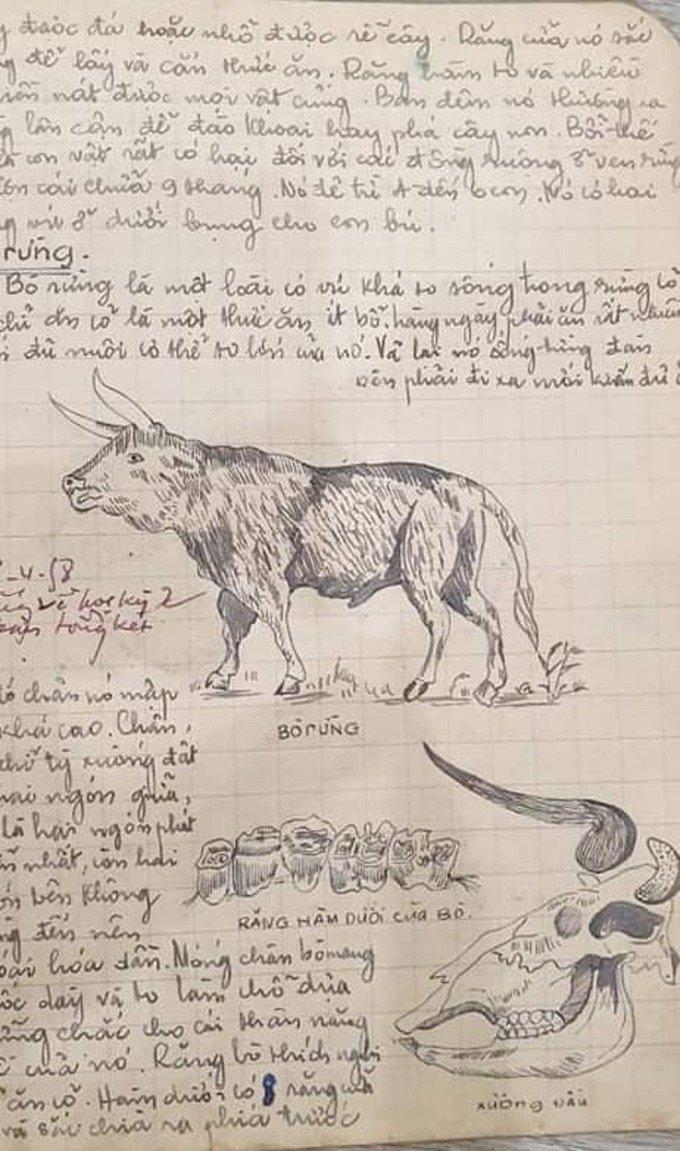 được đá hoặc nhổ được rễ cây. Răng cửa nó sắc
để lấy và cắn thức ăn. Răng hàm to và nhiều
nát được mọi vật cứng. Ban đêm nó thường ra
lân cận để đào khoai hay phá cây non. Bởi thế
con vật rất có hại đối với các đồng ruộng ở ven rừng
cái chửa 9 tháng. Nó đẻ từ 4 đến 6 con. Nó có hai
vú ở dưới bụng cho con bú.
rừng.
Bò rừng là một loài có vú khá to sống trong rừng cỏ
chỉ ăn cỏ là một thức ăn ít bổ, hàng ngày phải ăn rất nhiều
đủ nuôi cơ thể to lớn của nó. Vả lại nó sống từng đàn
nên phải đi xa mới kiếm đủ
-4-58
về học kỳ 2
tổng kết
chân nó mập
khá cao. Chân,
chỉ tỳ xuống đất
hai ngón giữa,
là hai ngón phát
nhất, còn hai
bên không
đến nên
hóa dần. Móng chân bò mang
dày và to làm chỗ dựa
chắc cho cái thân nặng
của nó. Răng bò thích nghi
ăn cỏ. Hàm dưới có 8 răng cửa
và sắc chìa ra phía trước
BÒ RỪNG
RĂNG HÀM DƯỚI CỦA BÒ.
XƯƠNG ĐẦU